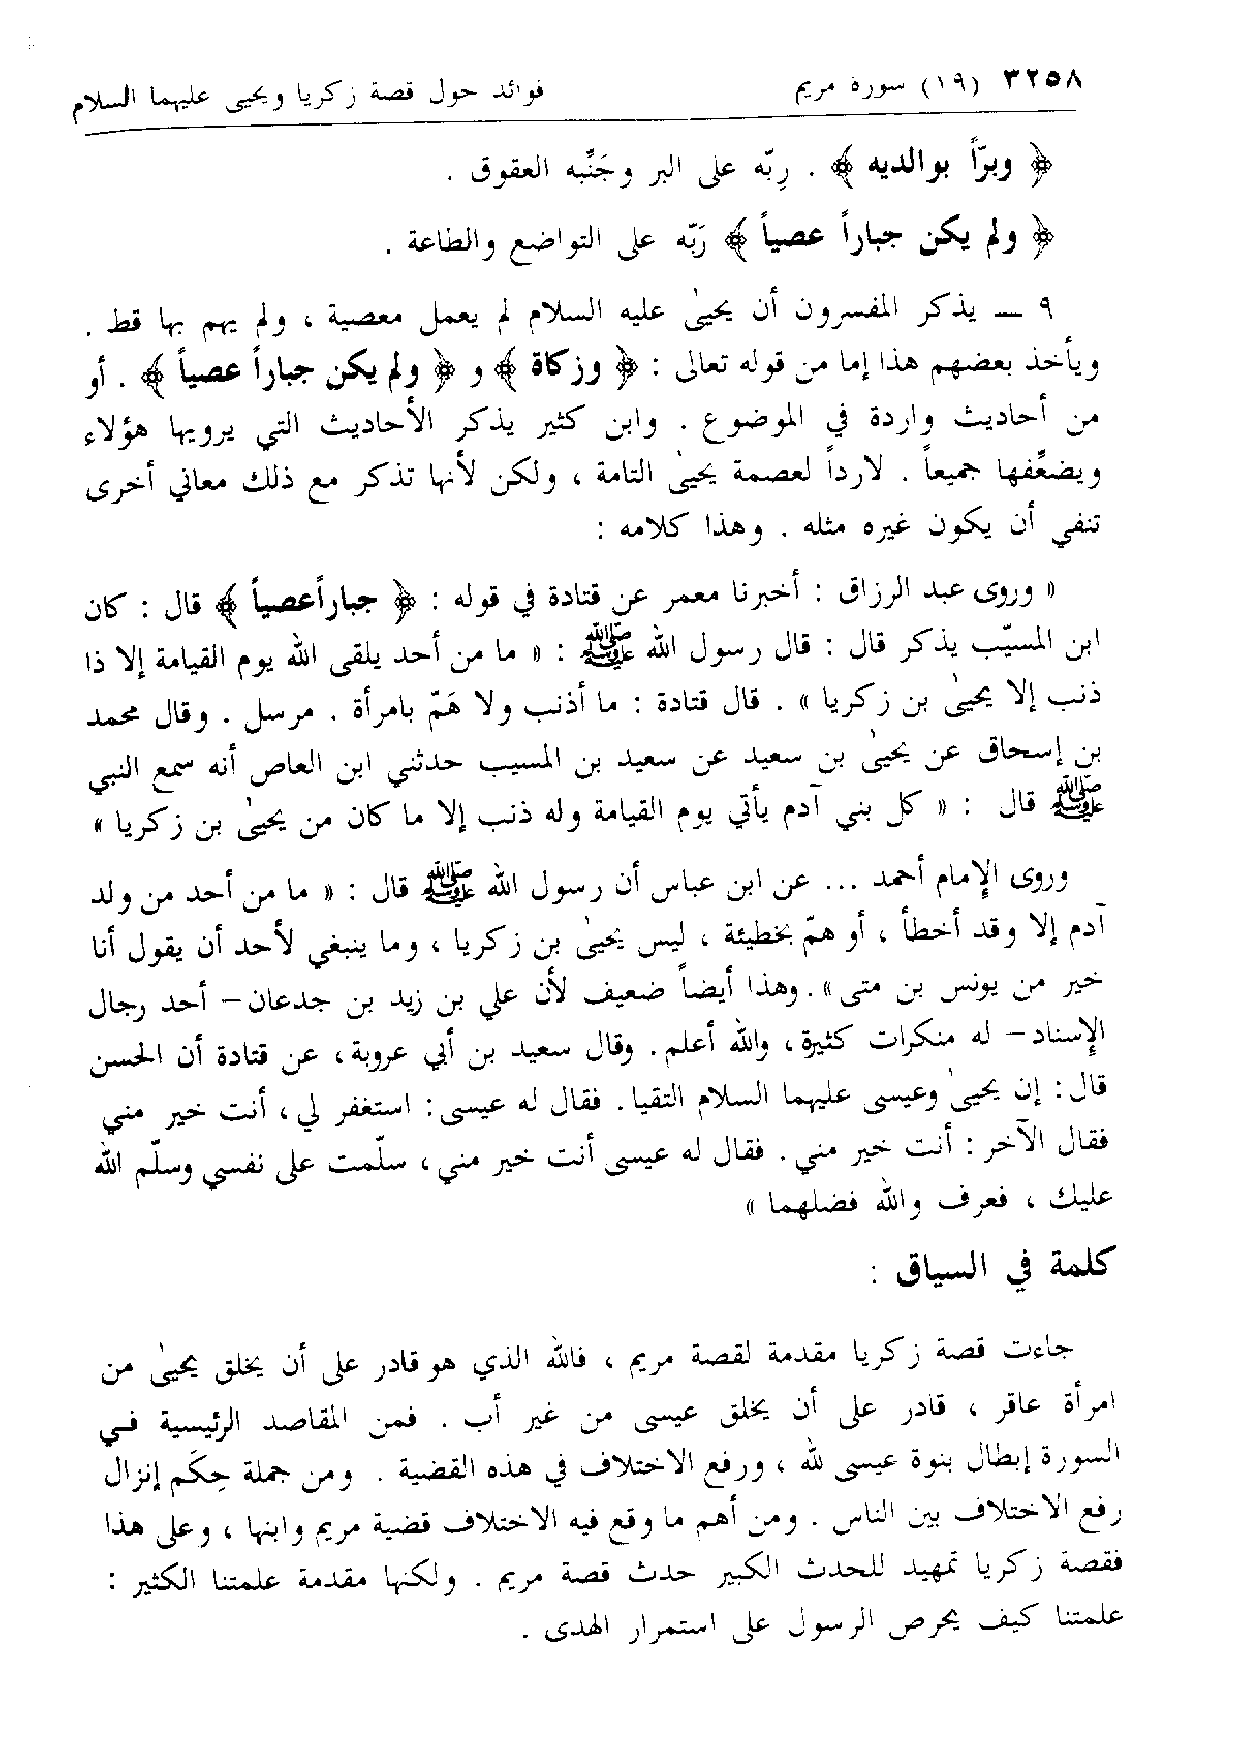 ٣٢٥٨ (١٩) سورة مريم فوائد حول قصة زكريا ويحيى عليهما السلام
﴿ وبرّاً بوالديه ﴾ . رِبّه على البر وجَنِّبه العقوق .
﴿ ولم يكن جباراً عصياً ﴾ رَبّه على التواضع والطاعة .
٩ — يذكر المفسرون أن يحيىٰ عليه السلام لم يعمل معصية ، ولم يهم بها قط .
ويأخذ بعضهم هذا إما من قوله تعالى : ﴿ وزكاة ﴾ و ﴿ ولم يكن جباراً عصياً ﴾ . أو
من أحاديث واردة في الموضوع . وابن كثير يذكر الأحاديث التي يرويها هؤلاء
ويضعِّفها جميعاً . لارداً لعصمة يحيىٰ التامة ، ولكن لأنها تذكر مع ذلك معاني أخرى
تنفي أن يكون غيره مثله . وهذا كلامه :
« وروى عبد الرزاق : أخبرنا معمر عن قتادة في قوله : ﴿ جباراًعصياً ﴾ قال : كان
ابن المسيّب يذكر قال : قال رسول الله ﷺ : « ما من أحد يلقى الله يوم القيامة إلا ذا
ذنب إلا يحيىٰ بن زكريا » . قال قتادة : ما أذنب ولا هَمّ بامرأة . مرسل . وقال محمد
بن إسحاق عن يحيىٰ بن سعيد عن سعيد بن المسيب حدثني ابن العاص أنه سمع النبي
ﷺ قال : « كل بني آدم يأتي يوم القيامة وله ذنب إلا ما كان من يحيىٰ بن زكريا »
وروى الإمام أحمد ... عن ابن عباس أن رسول الله ﷺ قال : « ما من أحد من ولد
آدم إلا وقد أخطأ ، أو همّ بخطيئة ، ليس يحيىٰ بن زكريا ، وما ينبغي لأحد أن يقول أنا
خير من يونس بن متى ». وهذا أيضاً ضعيف لأن علي بن زيد بن جدعان – أحد رجال
الإسناد – له منكرات كثيرة ، والله أعلم . وقال سعيد بن أبي عروبة ، عن قتادة أن الحسن
قال : إن يحيىٰ وعيسى عليهما السلام التقيا . فقال له عيسى : استغفر لي ، أنت خير مني
فقال الآخر : أنت خير مني . فقال له عيسى أنت خير مني ، سلّمت على نفسي وسلّم الله
عليك ، فعرف والله فضلهما »
كلمة في السياق :
جاءت قصة زكريا مقدمة لقصة مريم ، فالله الذي هو قادر على أن يخلق يحيىٰ من
امرأة عاقر ، قادر على أن يخلق عيسى من غير أب . فمن المقاصد الرئيسية في
السورة إبطال بنوة عيسى لله ، ورفع الاختلاف في هذه القضية . ومن جملة حِكَم إنزال
رفع الاختلاف بين الناس . ومن أهم ما وقع فيه الاختلاف قضية مريم وابنها ، وعلى هذا
فقصة زكريا تمهيد للحدث الكبير حدث قصة مريم . ولكنها مقدمة علمتنا الكثير :
علمتنا كيف يحرص الرسول على استمرار الهدى .